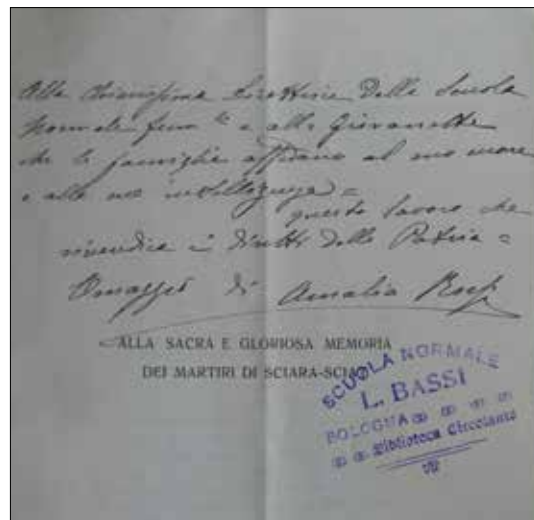 Alla Chiarissima Direttrice della Scuola
Normale femm.le e alle Giovanette
che le famiglie affidano al suo cuore
e alla sua intelligenza =
questo lavoro che
rivendica i diritti della Patria =
Omaggio di Amalia
ALLA SACRA E GLORIOSA MEMORIA
DEI MARTIRI DI SCIARA-SCIAT
SCUOLA NORMALE
L. BASSI
BOLOGNA
Biblioteca Circolante